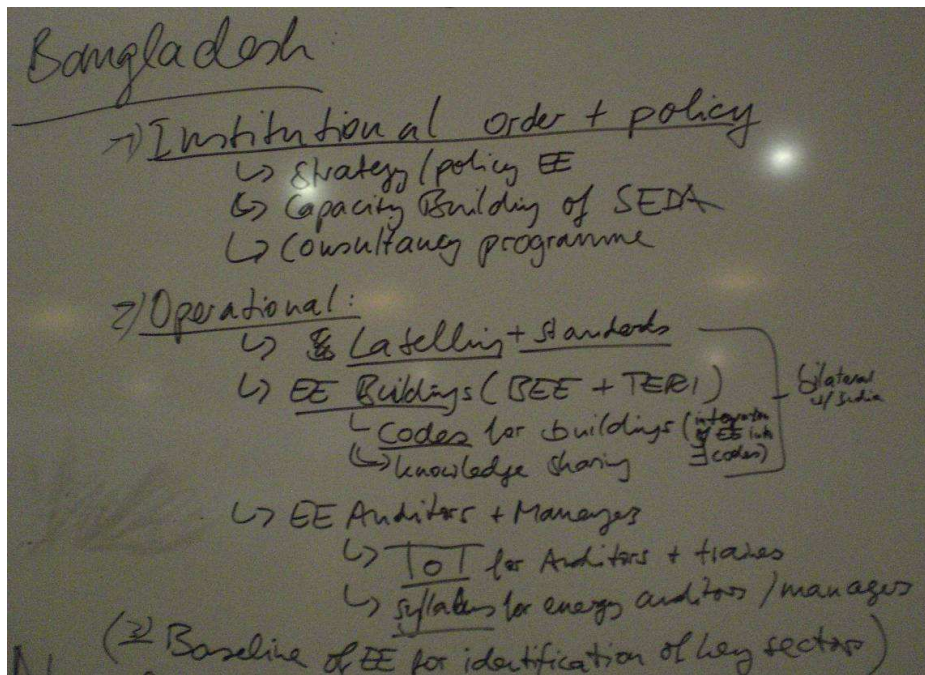 Bangladesh:
1) Institutional order + policy
↳ Strategy / policy EE
↳ Capacity Building of SEDA
↳ Consultancy programme
2) Operational:
↳ Labelling + standards
↳ EE Buildings (BEE + TERI)
bilateral
w/ India
↳ Codes for buildings (integration
of EE into
∃ codes)
↳ knowledge sharing
↳ EE Auditors + Managers
↳ ToT for Auditors + trainers
↳ syllabus for energy auditors / managers
(3) Baseline of EE for identification of key sectors)